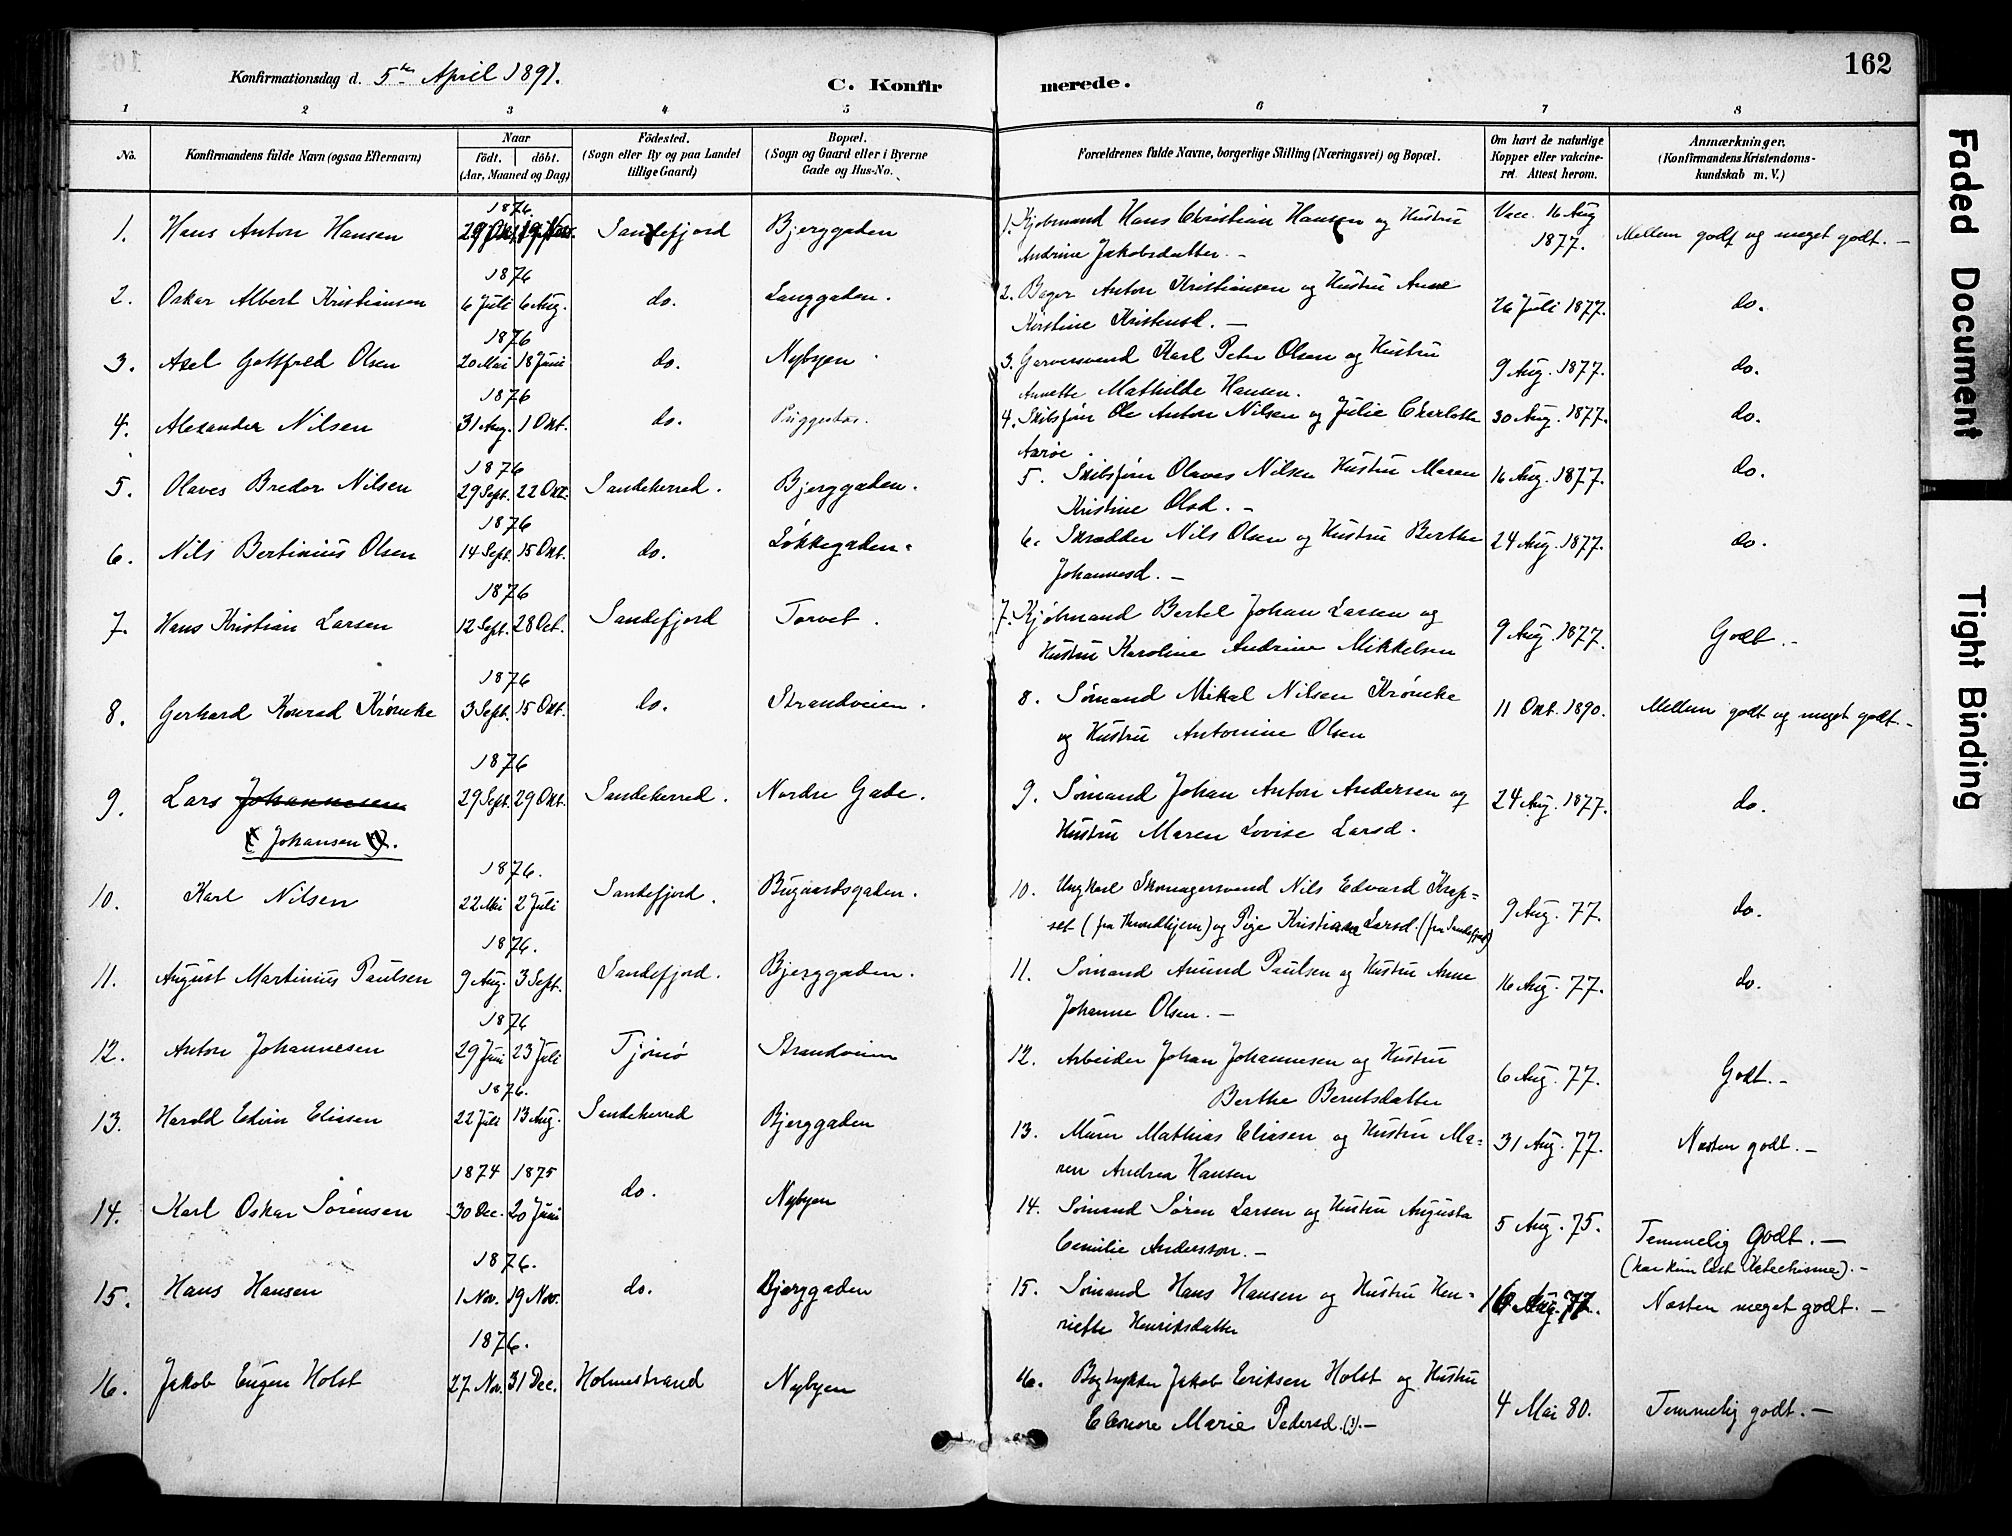 162
Konfirmationsdag d. 5te April 1891.
C. Konfirmerede.
1 2 3 4 5 6 7 8
No.
Konfirmandens fulde Navn (ogsaa Efternavn)
Naar
födt. döbt.
(Aar, Maaned og Dag)
Födested.
(Sogn eller By og paa Landet
tillige Gaard)
Bopæl.
(Sogn og Gaard eller i Byerne
Gade og Hus-No.
Forældrenes fulde Navne, borgerlige Stilling (Næringsvei) og Bopæl.
Om havt de naturlige
Kopper eller vakcine-
ret. Attest herom.
Anmærkninger.
(Konfirmandens Kristendoms-
kundskab m. V.)
1876.
1. Hans Anton Hansen 29 Okt. 19 Nov. Sandefjord Bjerggaden 1. Kjøbmand Hans Christian Hansen og Hustru Vacc. 16 Aug
Andrine Jakobsdatter. — 1877. Mellem godt og meget godt. —
1876
2. Oskar Albert Kristiansen 6 Juli 6 Aug. do. Langgaden. 2. Bager Anton Kristiansen og Hustru Anne 26 Juli 1877. do.
Kirstine Kristensd. —
1876
3. Axel Gottfred Olsen 20 Mai 18 Juni do. Nybyen 3. Garversvend Karl Peter Olsen og Hustru 9 Aug. 1877. do.
Annette Mathilde Hansen.
1876
4. Alexander Nilsen 31 Aug. 1 Okt. do. 4. Skibsførn Ole Anton Nilsen og Julie Charlotte 30 Aug. 1877. do.
Aarøe.
1876
5. Olaves Bredor Nilsen 29 Sept. 22 Okt. Sandeherred. Bjerggaden. 5. Skibsførn Olaves Nilsen Hustru Maren 16 Aug. 1877. do.
Kristine Olsd. —
1876
6. Nils Bertinius Olsen 14 Sept. 15 Okt. do. Løkkegaden. 6. Skrædder Nils Olsen og Hustru Berthe 24 Aug. 1877. do.
Johannesd. —
1876
7. Hans Kristian Larsen 12 Sept. 28 Oct. Sandefjord Torvet. 7. Kjøbmand Bertel Johan Larsen og 9 Aug. 1877. Godt. —
Hustru Karoline Andrine Mikkelsen
1876
8. Gerhard Konrad Krøncke 3 Sept. 15 Okt. do. Strandveien. 8. Sømand Mikal Nilsen Krøncke 11 Okt. 1890. Mellem godt og meget godt. —
og Hustru Antonine Olsen
1876
9. Lars Johannesen 29 Sept. 29 Okt. Sandeherred. Nordre Gade. 9. Sømand Johan Anton Andersen og 24 Aug. 1877. do.
Johansen. Hustru Maren Lovise Larsd.
1876.
10. Karl Nilsen 22 Mai 2 Juli Sandefjord. Bugaardsgaden. 10. Ungkarl Skomagersvend Nils Edvard Krog-
set (fra Throndhjem) og Pige Kristiane Larsd. (fra Sandefjord) 9 Aug. 77. do.
1876.
11. August Martinius Paulsen 9 Aug. 3 Sept. Sandefjord. Bjerggaden. 11. Sømand Amund Paulsen og Hustru Anne 16 Aug. 77. do.
Johanne Olsen. —
1876
12. Anton Johannesen 29 Juni 23 Juli Tjømø Strandveien 12. Arbeider Johan Johannesen og Hustru 6 Aug. 77. Godt. —
Berthe Berntsdatter
1876.
13. Harald Edvin Eliasen 22 Juli 13 Aug. Sandeherred Bjerggaden 13. Murer Mathias Eliasen og Hustru Ma- 31 Aug. 77. Næsten godt. —
ren Andrea Hansen
1874 1875
14. Karl Oskar Sørensen 30 Dec. 20 Juni do. Nybyen 14. Sømand Søren Larsen og Hustru Augusta 5 Aug. 75. Temmelig Godt. —
Cemilie Andersson. — (har kun læst Katechisme). —
1876.
15. Hans Hansen 1 Nov. 19 Nov. do. Bjerggaden 15. Sømand Hans Hansen og Hustru Hen- 16 Aug. 77. Næsten meget godt. —
riette Henriksdatter
1876.
16. Jakob Eugen Holst 27 Nov. 31 Dec. Holmestrand Nybyen 16. Bogtrykker Jakob Eriksen Holst og Hustru 4 Mai 80. Temmelig godt. —
Elenore Marie Pedersd. (?). —
Faded Document
Tight Binding